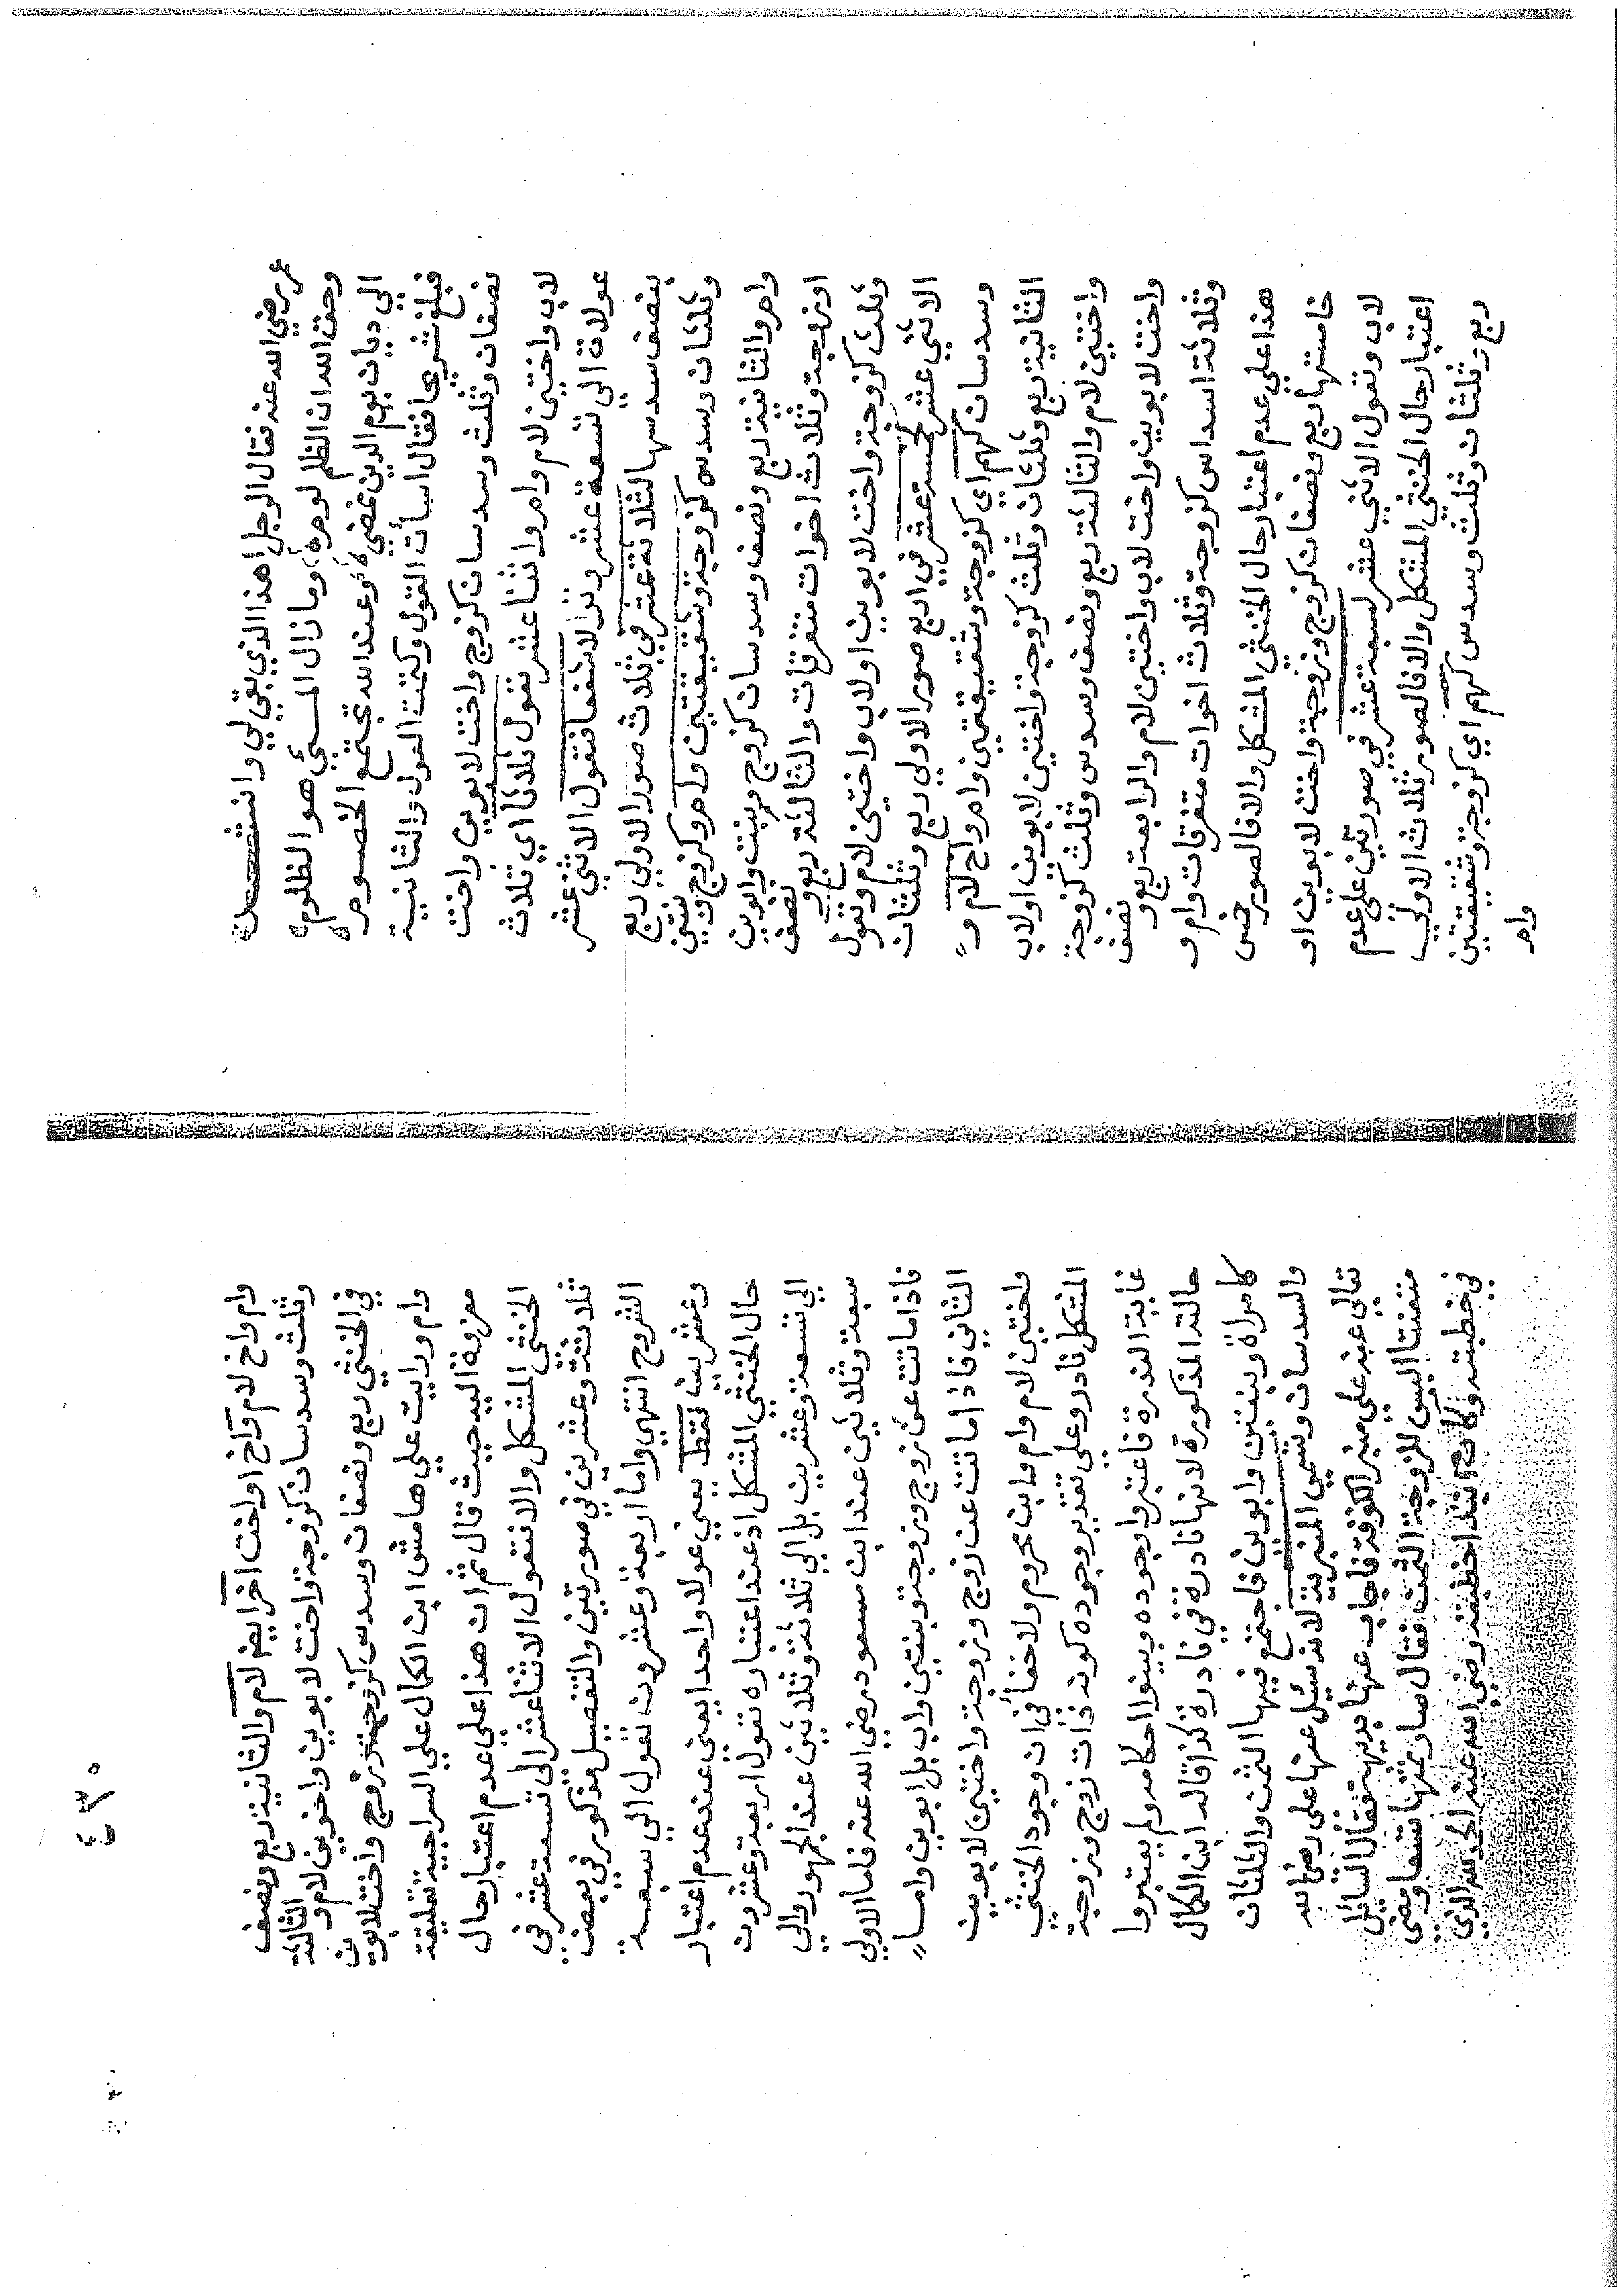 عمر رضي الله عنه فقال الرجل اهذا الذي بقي لي وانشد
وحق الله ان الظلم لوم وما زال المسئ هو الظلوم
الي ديان يوم الدين نمضي وعند الله تجتمع الخصوم
فبلغ شريحا فقال اسأت القول وكتمت العول والثانية
نصفان وثلث وسدسان كزوج واخت لابوين واخت
لاب واختين لام وام واثنا عشر تعول ثلاثا اي ثلاث
عولات الي تسعة عشر وترا لاشفعا فتعول الاثني عشر
بنصف سدسها لثلاثة عشر في ثلاث صور الاولي ربع
وثلثان وسدس كزوجة وشقيقتين وام وكزوج وبنتين
وام والثانية ربع ونصف وسدسان كزوج وبنت وابوين
اوزوجة وثلاث اخوات متفرقات والثالثة ربع ونصف
وثلث كزوجة واخت لابوين اولاب واختين لام وتعول
الاثني عشر لخمسة عشر في اربع صور الاولي ربع وثلثان
وسدسان كهم اي كزوجة وشقيقتين وام واخ لام و
الثانية ربع وثلثان وثلث كزوجة واختين لابوين اولاب
واختين لام والثالثة ربع ونصف وسدس وثلث كزوجة
واخت لابوين واخت لاب واختين لام والرابعة ربع ونصف
وثلاثة اسداس كزوجة وثلاث اخوات متفرقات وام و
هذا علي عدم اعتبار حال الخنثي المشكل والا فالصور خمس
خامستها ربع ونصفان كزوج وزوجة واخت لابوين او
لاب وتعول الاثني عشر لسبعة عشر في صورتين علي عدم
اعتبار حال الخنثي المشكل والا فالصور ثلاث الاولي
ربع وثلثان وثلث وسدس كهم اي كزوجة وشقيقتين
وام
وام واخ لام واخ اواخت اخر ايضا لام والثانية ربع ونصف
وثلث وسدسان كزوجة واخت لابوين واخوين لام و الثالثة
في الخنثي ربع ونصفان وسدس كزوجة وزوج واخت لابوين
وام ورايت علي هامش ابن الكمال علي السراجية تعليقة
معزوة اليه حيث قال ثم ان هذا علي عدم اعتبار حال
الخنثي المشكل والا فتعول الاثنا عشر الي تسعة عشر في
ثلاثة وعشرين في صورتين والتفصيل مذكور في بعض
الشروح انتهي واما اربعة وعشرون تعول الي سبعة
وعشرين فقط يعني عولا واحدا يعني عند عدم اعتبار
حال الخنثي المشكل اذ عند اعتباره تعول اربعة وعشرون
الي تسعة وعشرين بل الي ثلاثة وثلاثين عند الجمهور والي
سبعة وثلاثين عند ابن مسعود رضي الله عنه فاما الاولي
فاذا ماتت عن زوج وزوجة وبنتين واب بل ابوين واما
الثاني فاذا ماتت عن زوج وزوجة واختين لابوين
واختين لام وام وابن محروم ولاخفأ في ان وجود الخنثي
المشكل نادر وعلي تقدير وجوده كونه ذات زوج وزوجة
غاية الندرة فاعتبروا وجوده وبينوا احكامه ولم يعتبروا
حالته المذكورة لانها نادرة في نادرة كذا قاله ابن الكمال
كامراة وبنتين وابوين فاجتمع فيها الثمن والثلثان
والسدسان وتسمي المنبرية لانه سئل عنها علي رضي الله
تعالي عنه علي منبر الكوفة فاجاب عنها بديهة فقال السائل
متعنتا اليس للزوجة الثمن فقال صار ثمنها تسعا ومضي
في خطبته وكان ابتدأ خطبته رضي الله عنه الحمد لله الذي
٤٣٠